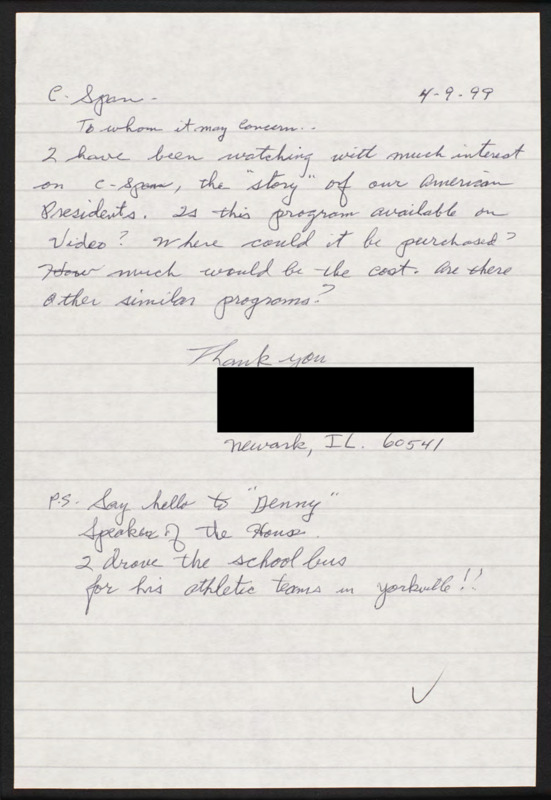 C-Span-
4-9-99
To whom it may concern..
I have been watching with much interest
on C-Span, the "story" of our American
Presidents. Is this program available on
Video? Where could it be purchased?
How much would be the cost. Are there
other similar programs?
Thank you
Newark, IL. 60541
P.S. Say hello to "Denny"
Speaker of the House.
I drove the school bus
for his athletic teams in Yorkville!!